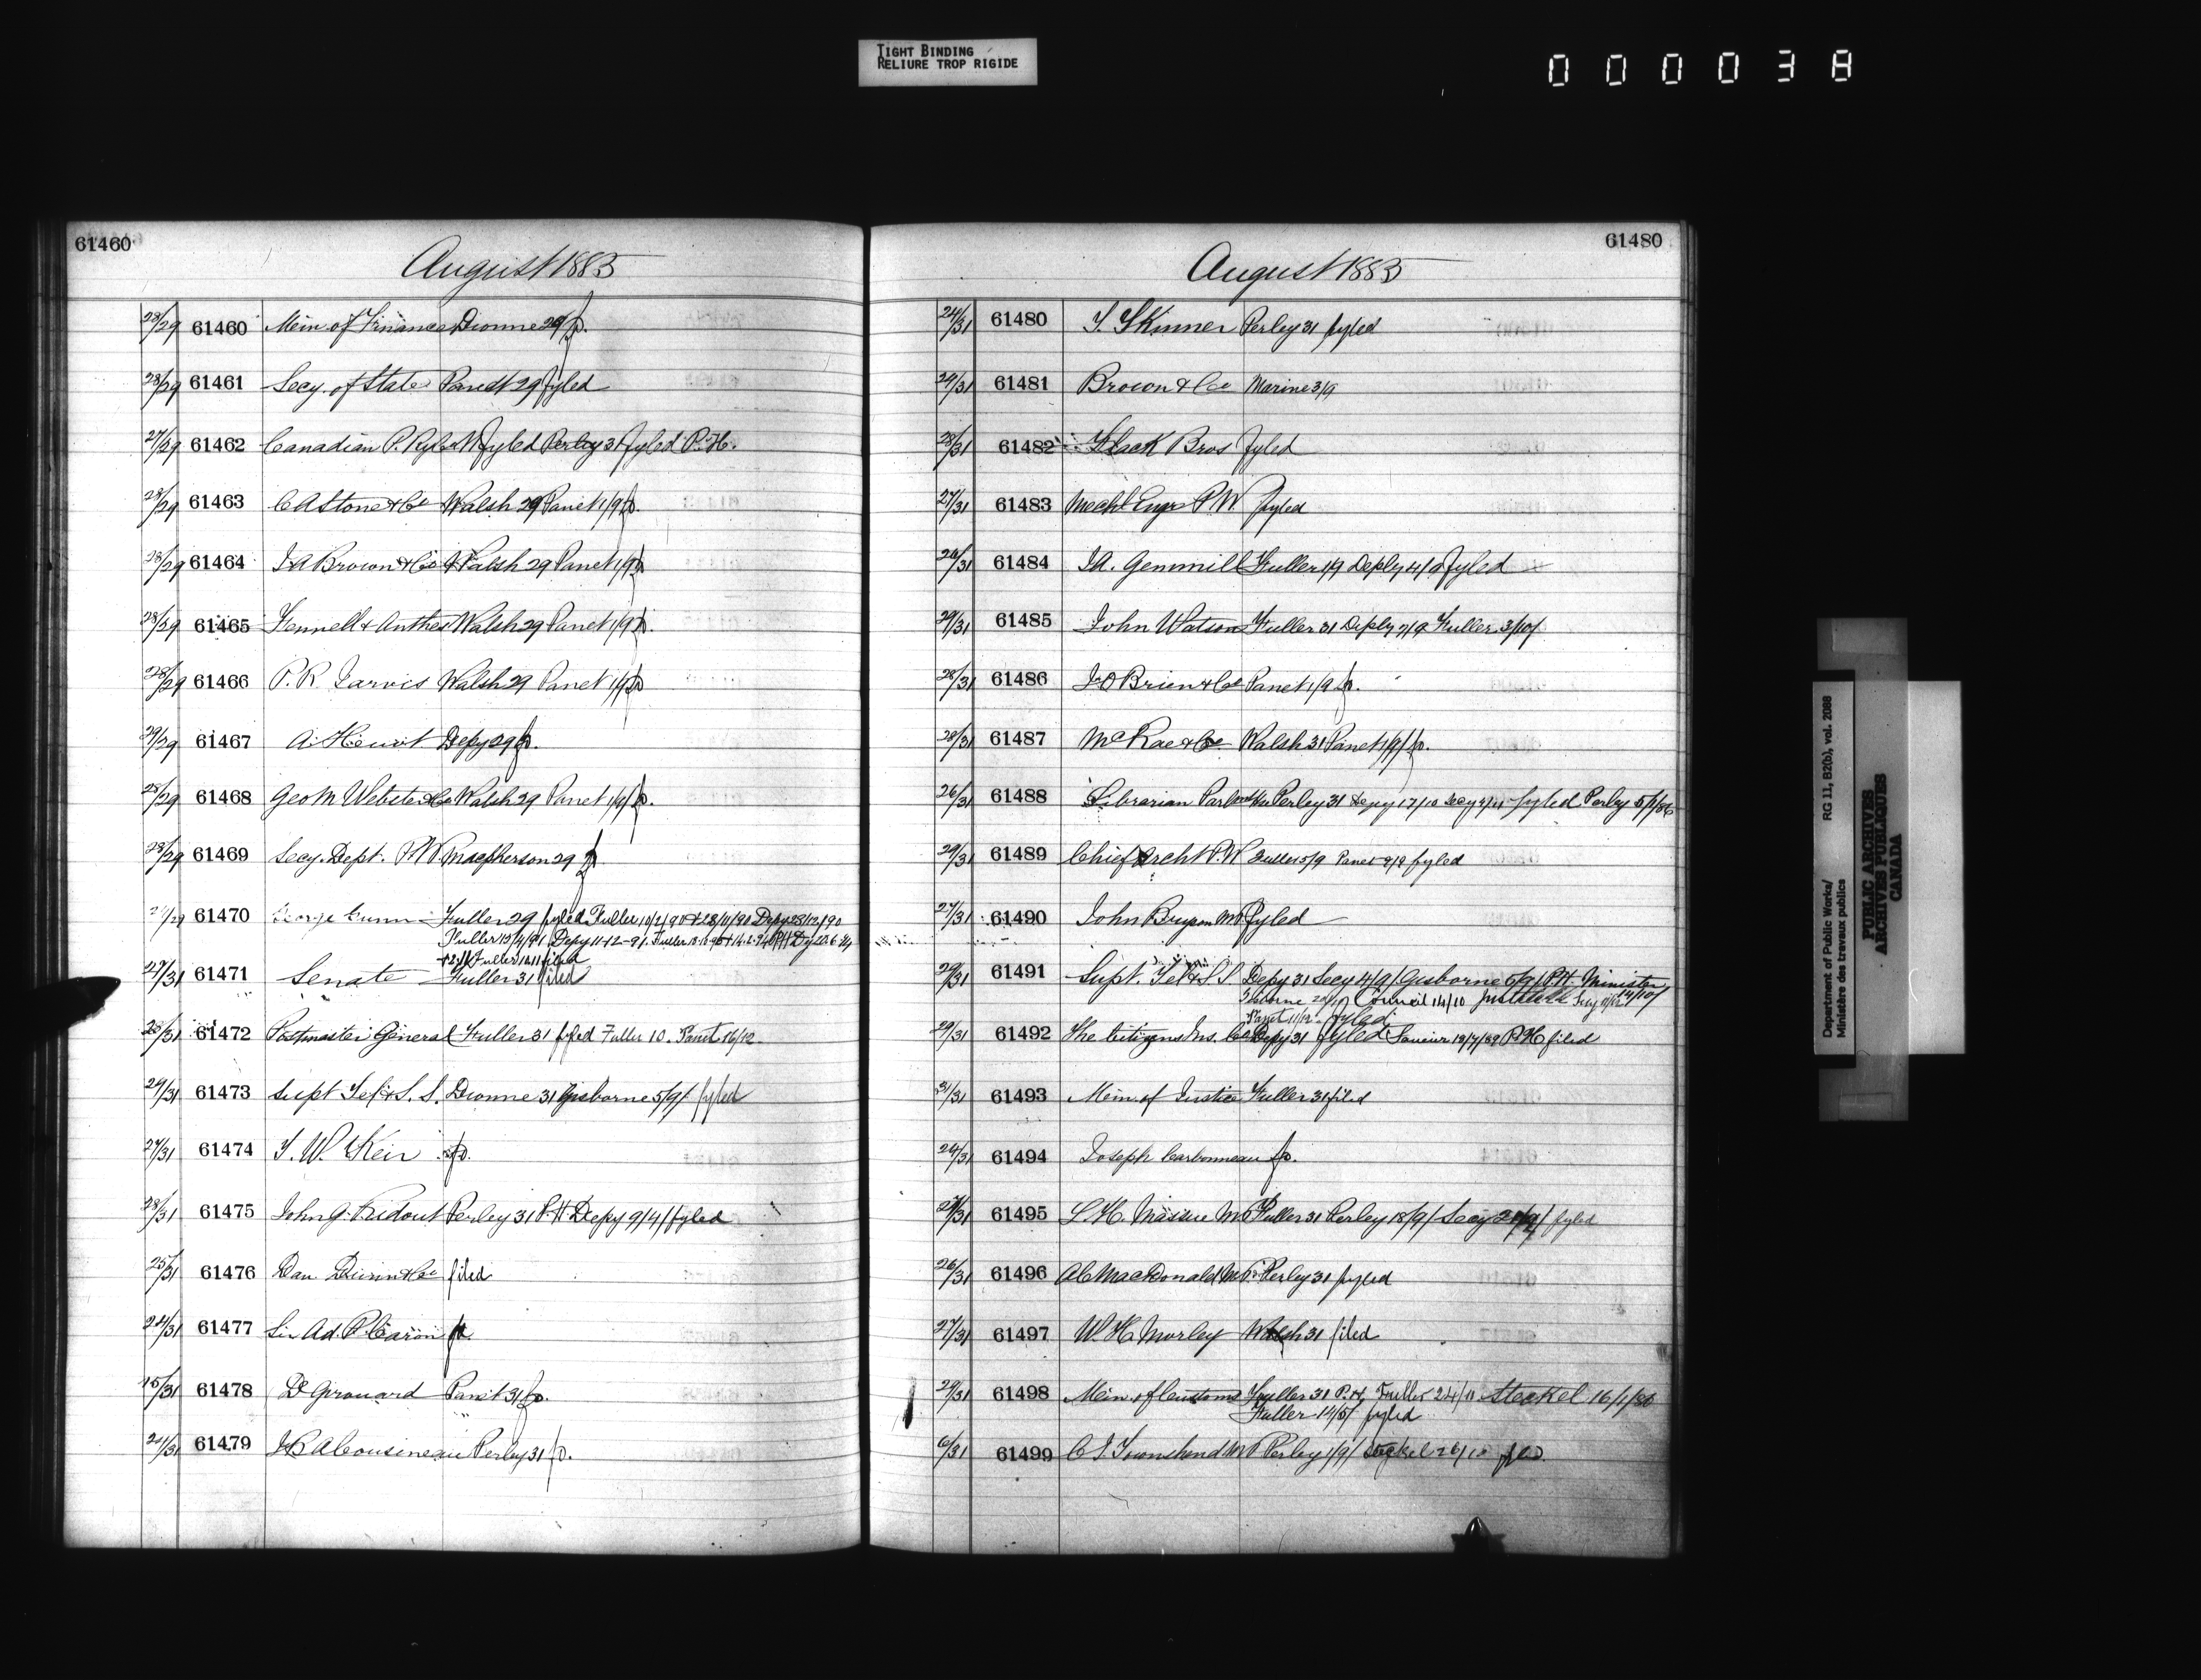 TIGHT BINDING
RELIURE TROP RIGIDE
000038
61460
August 1885
28/29 61460 Min. of Finance Dionne 29 fp.
28/29 61461 Secy. of State Panet 29 fyled
27/29 61462 Canadian P. Ry fyled Perley 31 fyled P.H.
28/29 61463 C A Stone & Co Walsh 29 Panet 1/9 fp.
28/29 61464 J A Brown & Co Walsh 29 Panet 1/9 fp.
28/29 61465 Fennell & Anthes Walsh 29 Panet 1/9 fp.
28/29 61466 P. R. Jarvis Walsh 29 Panet 1/9 fp
29/29 61467 A. Depy 29 fp.
28/29 61468 Geo M Webster & Co Walsh 29 Panet 1/9 fp.
28/29 61469 Secy. Dept. P.W. Macpherson 29 fp.
61470 George Fuller 29 fyled Fuller 10/2/90 + 28/11/90 Depy 28/12/90
Fuller 13/4/91 Depy 11-12-91. Fuller
Fuller filed
27/31 61471 Senate Fuller 31 filed
61472 Postmaster General Fuller 31 fyled Fuller 10. Panet 16/12
29/31 61473 Supt Tel & S. S. Dionne 31 Gisborne 5/9/ fyled
27/31 61474 T. W. Keir fp.
28/31 61475 John G. Ridout Perley 31 P.H Depy 9/4/ fyled
25/31 61476 Dan Dunn & Co filed
61477 Sir Ad. P. Caron fp
15/31 61478 D. Girouard Panet 31 fp.
61479 Cousineau Perley 31 fp.
61480
August 1885
24/31 61480 T. Skinner Perley 31 fyled
29/31 61481 Brown & Co Marine 3/9
28/31 61482 Black Bros fyled
27/31 61483 Mechl Engr P.W. fyled
61484 J A. Gemmill Fuller 1/9 Deply fyled
29/31 61485 John Watson Fuller 31 Deply 7/9 Fuller 3/10/
28/31 61486 J O'Brien & Co Panet 1/9 fp.
28/31 61487 McRae & Co Walsh 31 Panet 1/9/ fp.
26/31 61488 Librarian Perley 31 Depy 17/10 Secy fyled Perley 5/1/86
29/31 61489 Chief Archt P.W Fuller 5/9 Panet fyled
27/31 61490 John Bryson MP fyled
29/31 61491 Supt. Tel & S. S Depy 31 Secy 4/9/ Gisborne 5/9/ P.H. Minister
Gisborne Council 14/10 Justice Secy 14/10/
Panet 11/12 fyled
29/31 61492 The Citizens Ins. Co Depy 31 fyled 19/7/89 P.H filed
31/31 61493 Min. of Justice Fuller 31 filed
61494 Joseph Carbonneau fp.
27/31 61495 Massue MP Fuller 31 Perley 18/9/ Secy fyled
26/31 61496 A C MacDonald M.P. Perley 31 fyled
27/31 61497 W. H Morley Walsh 31 filed
29/31 61498 Min. of Customs Fuller 31 P.H. Fuller Steckel 16/1/86
Fuller 14/5/ fyled
6/31 61499 C J Townshend MP Perley 1/9/ Steckel fyled
RG 11, B2(b), vol. 2088
Department of Public Works/
Ministère des travaux publics
PUBLIC ARCHIVES
ARCHIVES PUBLIQUES
CANADA